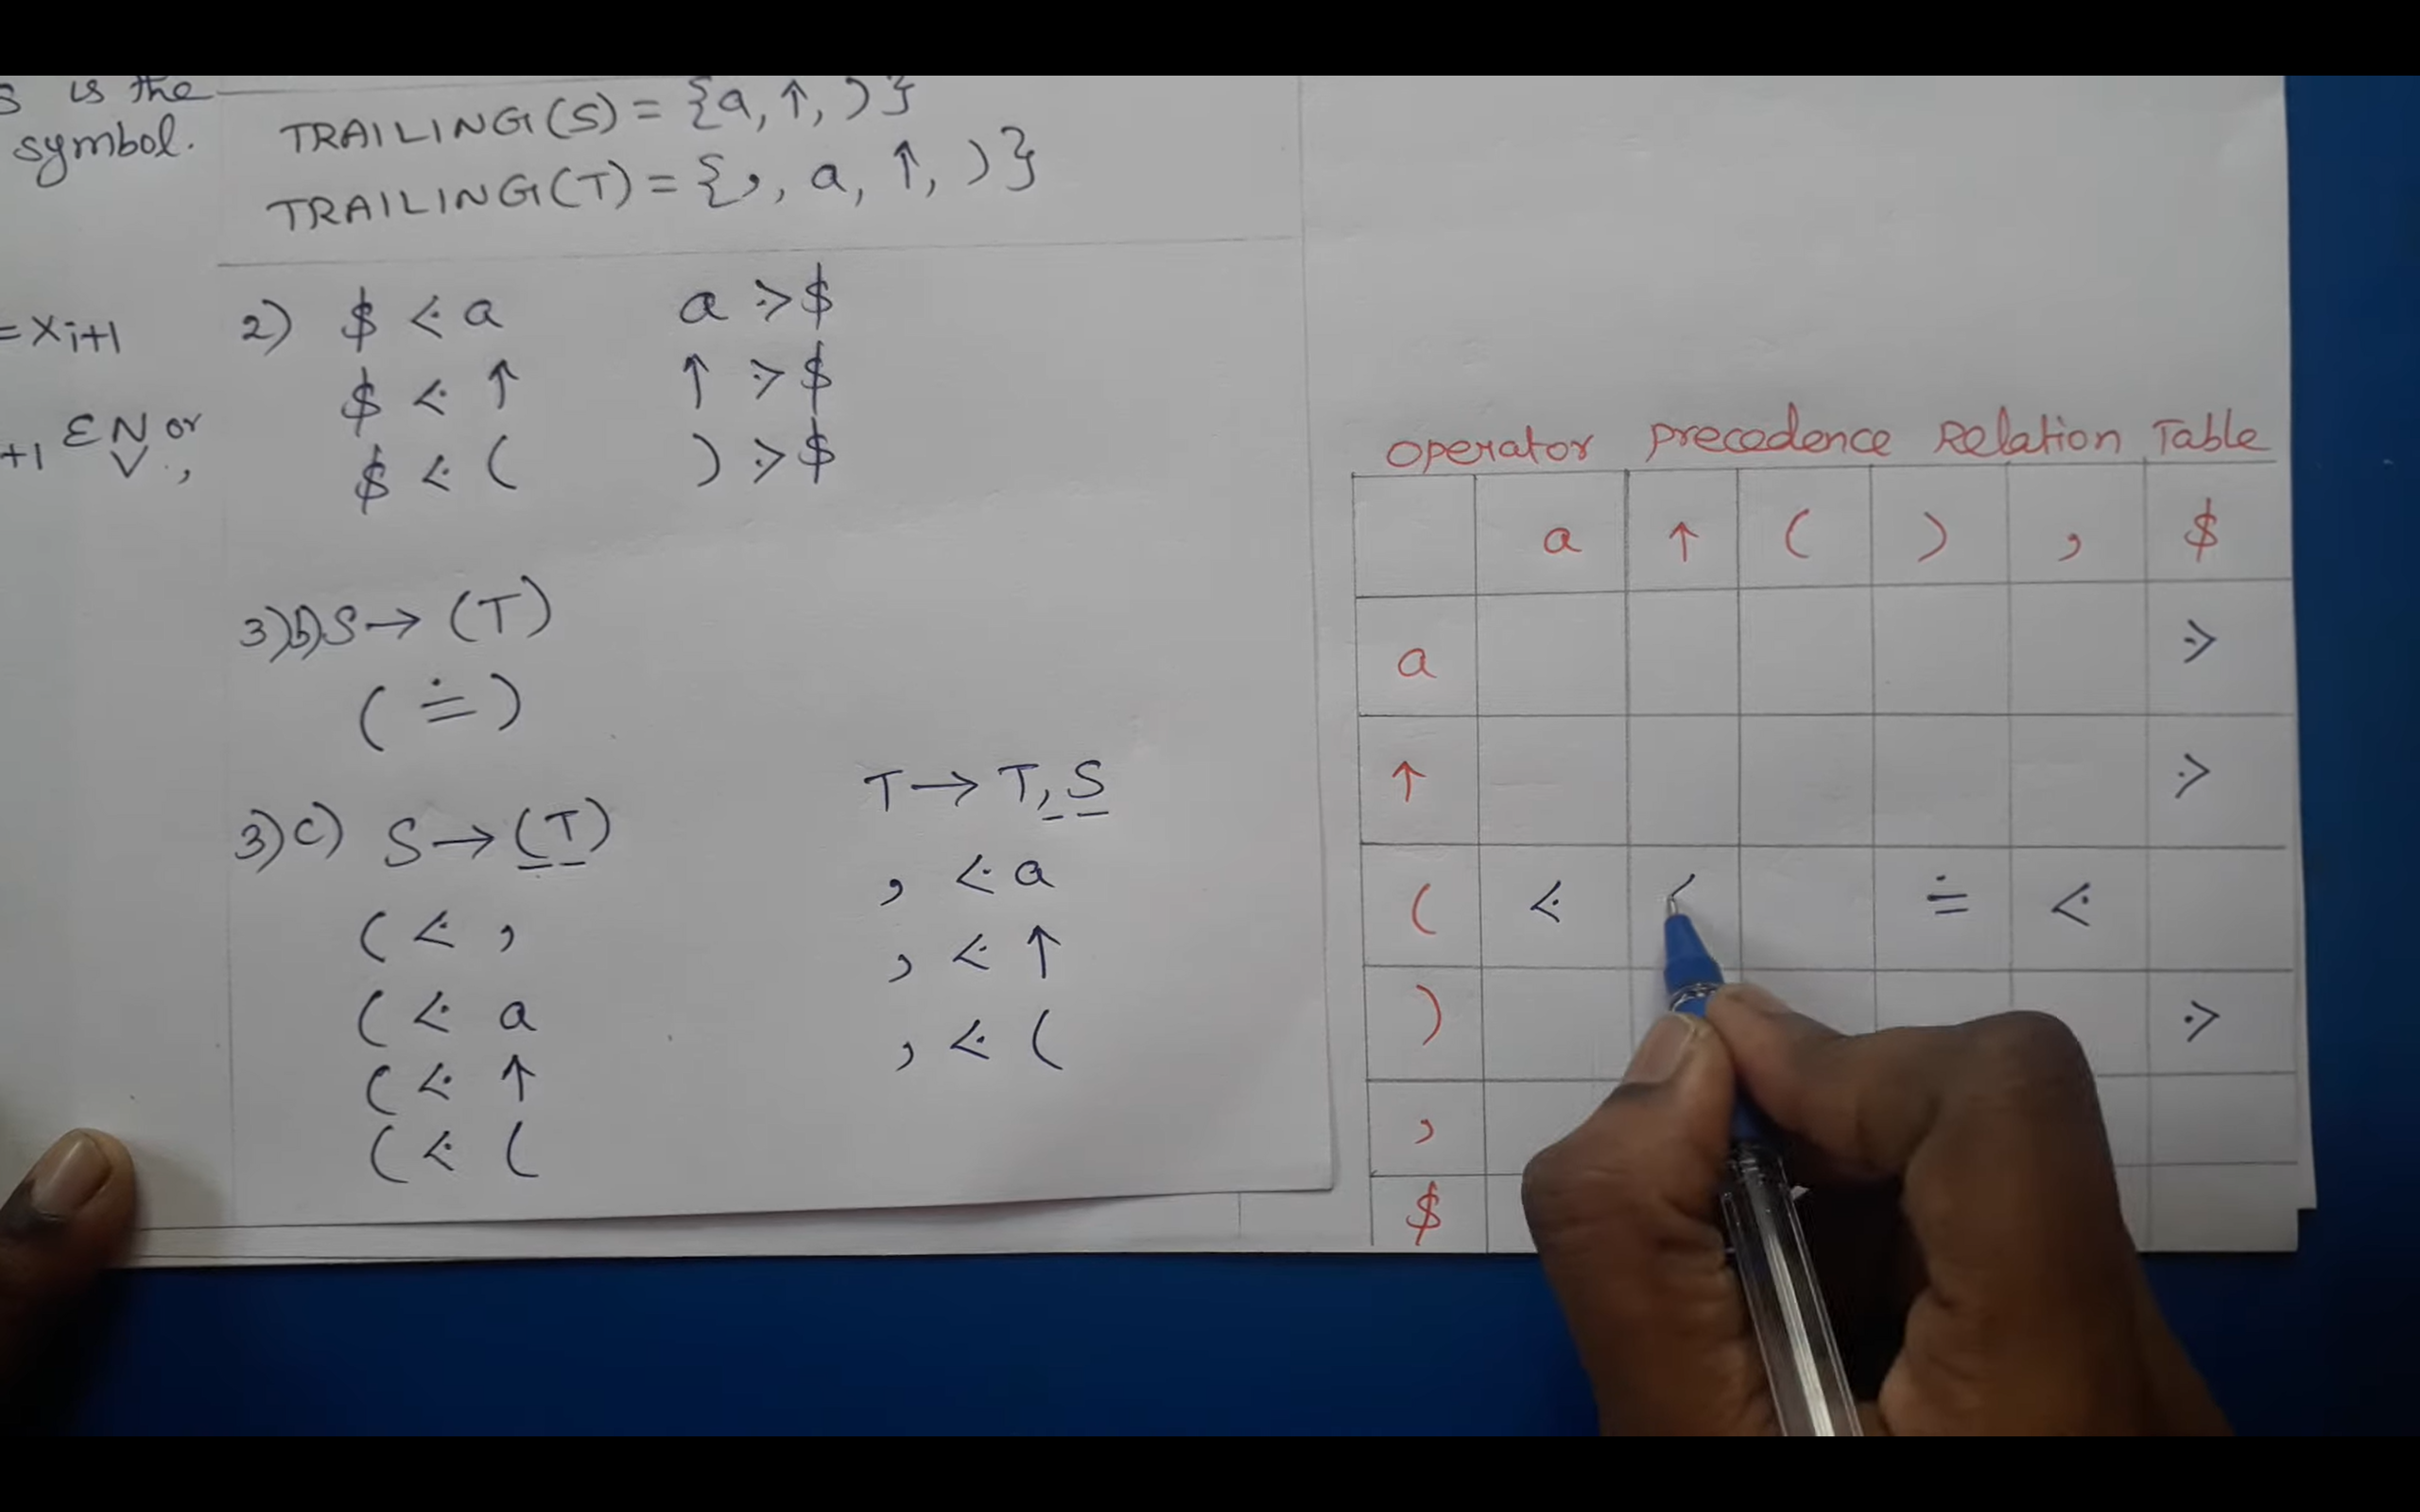 S is the
symbol.
= Xi+1
+1 ƐN or
V.,
TRAILING(S) = {a, ↑, )}
TRAILING(T) = {,, a, ↑, )}
2) $ ⋖ a a ⋗ $
$ ⋖ ↑ ↑ ⋗ $
$ ⋖ ( ) ⋗ $
3)b) S → (T)
( ≐ )
3)c) S → (T)
( ⋖ ,
( ⋖ a
( ⋖ ↑
( ⋖ (
T → T, S
, ⋖ a
, ⋖ ↑
, ⋖ (
Operator Precedence Relation Table
a ↑ ( ) , $
a ⋗
↑ ⋗
( ⋖ < ≐ ⋖
) ⋗
,
$